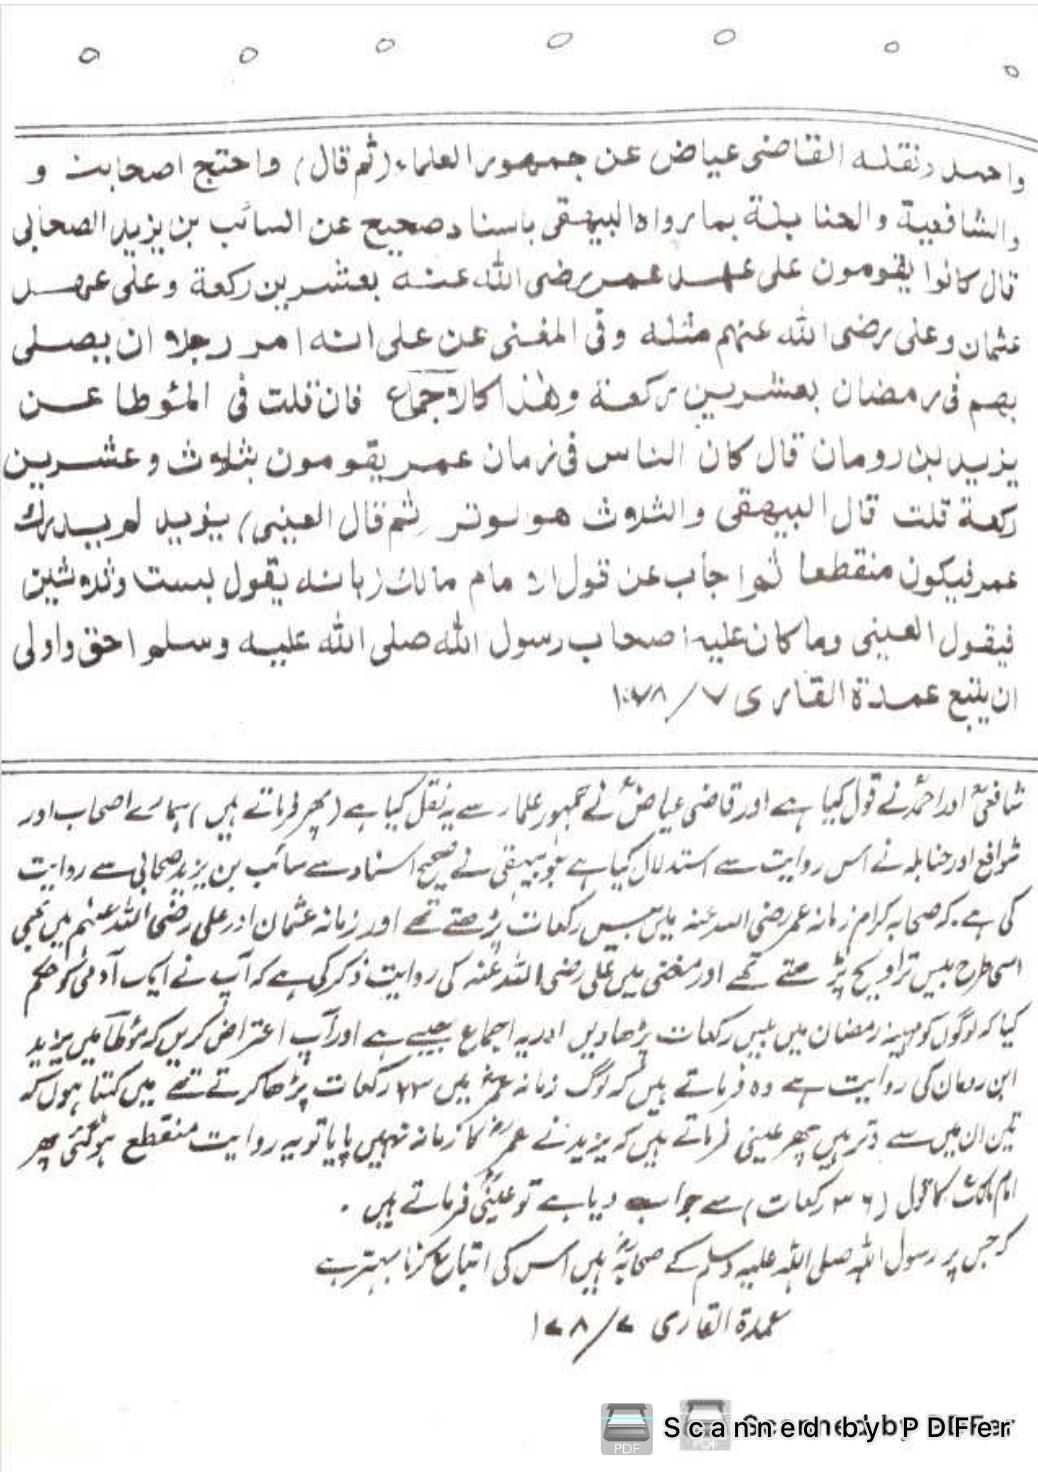 واحمد ونقله القاضى عياض عن جمهور العلماء (ثم قال) واحتج اصحابنا و
والشافعية والحنابلة بما رواه البيهقى باسناد صحيح عن السائب بن يزيد الصحابى
قال كانوا يقومون على عهد عمر رضى الله عنه بعشرين ركعة وعلى عهد
عثمان وعلى رضى الله عنهم مثله وفى المغنى عن على انه امر رجلا ان يصلى
بهم فى رمضان بعشرين ركعة وهٰذا كالاجماع فان قلت فى المؤطا عن
يزيد بن رومان قال كان الناس فى زمان عمر يقومون بثلاث وعشرين
ركعة قلت قال البيهقى والثلاث هو لوتر (ثم قال العينى) يزيد لم يدرك
عمر فيكون منقطعا ثم اجاب عن قول الامام مالك بانه يقول بست وثلاثين
فيقول العينى وما كان عليه اصحاب رسول الله صلى الله عليه وسلم احق واولى
ان يتبع عمدة القارى ٧/١٧٨
شافعیؒ اور احمدؒ نے قول کیا ہے اور قاضی عیاضؒ نے جمہور علماء سے یہ نقل کیا ہے (پھر فرماتے ہیں) ہمارے اصحاب اور
شوافع اور حنابلہ نے اس روایت سے استدلال کیا ہے جو بیہقی نے صحیح اسناد سے سائب بن یزید صحابی سے روایت
کی ہے۔ کہ صحابہ کرام زمانہ عمر رضی اللہ عنہ میں بیس رکعات پڑھتے تھے اور زمانہ عثمان اور علی رضی اللہ عنہم میں بھی
اسی طرح بیس تراویح پڑھتے تھے اور مغنی میں علی رضی اللہ عنہ کی روایت ذکر کی ہے کہ آپ نے ایک آدمی کو حکم
کیا کہ لوگوں کو مہینہ رمضان میں بیس رکعات پڑھادیں اور یہ اجماع جیسے ہے اور آپ اعتراض کریں کہ مؤطا میں یزید
ابن رومان کی روایت ہے وہ فرماتے ہیں کہ لوگ زمانہ عمرؓ میں ۲۳ رکعات پڑھا کرتے تھے میں کہتا ہوں کہ
تین ان میں سے وتر ہیں پھر عینی فرماتے ہیں کہ یزید نے عمرؓ کا زمانہ نہیں پایا تو یہ روایت منقطع ہو گئی پھر
امام مالکؒ کا قول (۳۶ رکعات) سے جواب دیا ہے تو عینیؒ فرماتے ہیں ۔
کہ جس پر رسول اللہ صلی اللہ علیہ وسلم کے صحابہؓ ہیں اس کی اتباع کرنا بہتر ہے
عمدۃ القاری ۷/۱۷۸
Scanned by PDFer